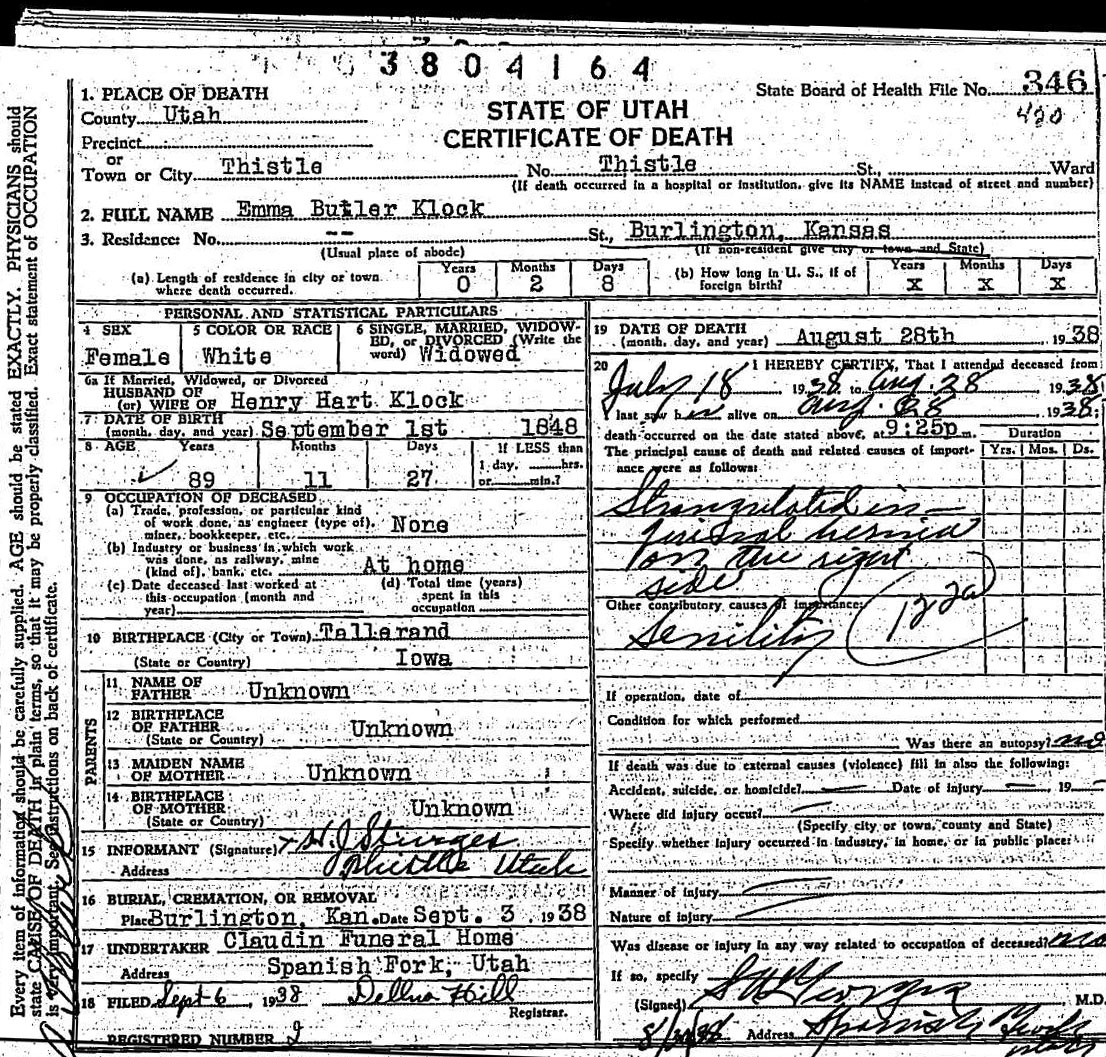 3804164
State Board of Health File No. 346
420
STATE OF UTAH
CERTIFICATE OF DEATH
1. PLACE OF DEATH
County Utah
Precinct
or
Town or City Thistle No. Thistle St., Ward
(If death occurred in a hospital or institution, give its NAME instead of street and number)
2. FULL NAME Emma Butler Klock
3. Residence: No. -- St., Burlington, Kansas
(Usual place of abode) (If non-resident give city or town and State)
(a) Length of residence in city or town where death occurred. Years 0 Months 2 Days 8
(b) How long in U. S., if of foreign birth? Years X Months X Days X
PERSONAL AND STATISTICAL PARTICULARS
4 SEX Female
5 COLOR OR RACE White
6 SINGLE, MARRIED, WIDOW-
ED, or DIVORCED (Write the
word) Widowed
6a If Married, Widowed, or Divorced
HUSBAND OF
(or) WIFE OF Henry Hart Klock
7 DATE OF BIRTH
(month, day, and year) September 1st 1848
8 AGE Years 89 Months 11 Days 27
If LESS than
1 day, hrs.
or min.?
9 OCCUPATION OF DECEASED
(a) Trade, profession, or particular kind
of work done, as engineer (type of),
miner, bookkeeper, etc. None
(b) Industry or business in which work
was done, as railway, mine
(kind of), bank, etc. At home
(c) Date deceased last worked at
this occupation (month and
year)
(d) Total time (years)
spent in this
occupation
10 BIRTHPLACE (City or Town) Tallerand
(State or Country) Iowa
PARENTS
11 NAME OF
FATHER Unknown
12 BIRTHPLACE
OF FATHER Unknown
(State or Country)
13 MAIDEN NAME
OF MOTHER Unknown
14 BIRTHPLACE
OF MOTHER Unknown
(State or Country)
15 INFORMANT (Signature) H. J. Sturges
Address Thistle Utah
16 BURIAL, CREMATION, OR REMOVAL
Place Burlington, Kan. Date Sept. 3 1938
17 UNDERTAKER Claudin Funeral Home
Address Spanish Fork, Utah
18 FILED Sept 6 1938 Dellna Hill
Registrar.
REGISTERED NUMBER 2
19 DATE OF DEATH
(month, day, and year) August 28th 1938
20 I HEREBY CERTIFY, That I attended deceased from
July 18 1938 to Aug. 28 1938
I last saw her alive on Aug. 28 1938:
death occurred on the date stated above, at 9:25p m.
Duration
The principal cause of death and related causes of import-
ance were as follows: Yrs. Mos. Ds.
Strangulated in-
guinal hernia
on the right
side
Other contributory causes of importance:
Senility
122a
If operation, date of
Condition for which performed
Was there an autopsy? no
If death was due to external causes (violence) fill in also the following:
Accident, suicide, or homicide? — Date of injury — 19
Where did injury occur?
(Specify city or town, county and State)
Specify whether injury occurred in industry, in home, or in public place:
Manner of injury
Nature of injury
Was disease or injury in any way related to occupation of deceased? no
If so, specify
(Signed) M.D.
Address Spanish Fork
Utah
Every item of information should be carefully supplied. AGE should be stated EXACTLY. PHYSICIANS should
state CAUSE OF DEATH in plain terms, so that it may be properly classified. Exact statement of OCCUPATION
is very important. See instructions on back of certificate.